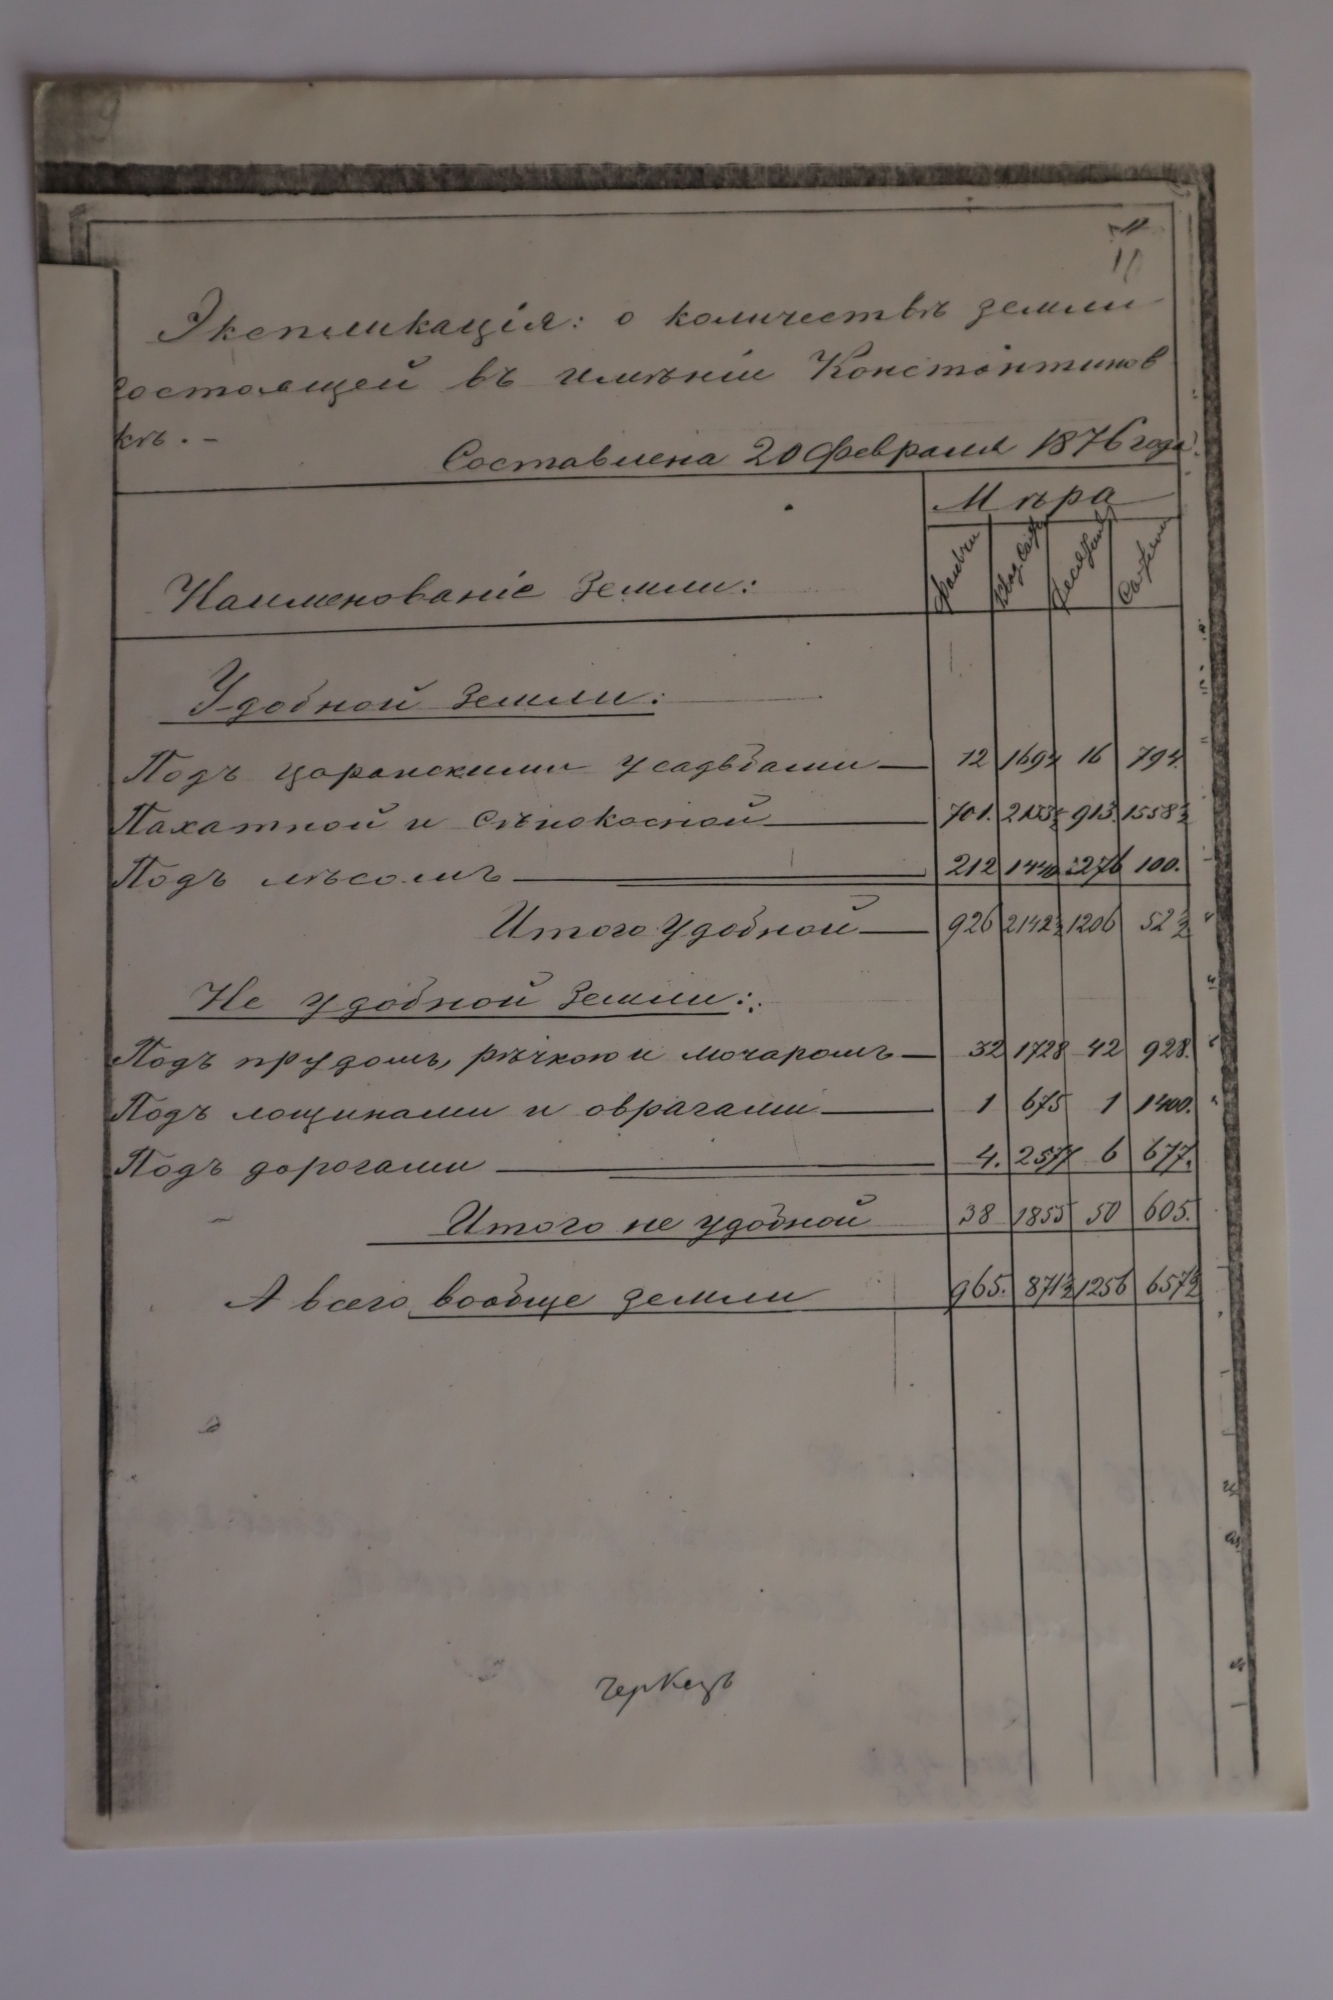 11
Экспликація: о количествѣ земли
состоящей въ имѣніи Константинов
кѣ. -
Составлена 20 Февраля 1876 года.
Мѣра
Наименованіе Земли:
Фальчи Квад. Саж. Десятины Сажени
Удобной Земли:
Подъ царанскими усадьбами — 12 1694 16 794.
Пахатной и сѣнокосной — 701. 913. 1558½
Подъ лѣсомъ — 212 1440 276 100.
Итого Удобной — 926 2142½ 1206 52½
Не удобной Земли:
Подъ прудомъ, рѣчкою и мочаромъ — 32 1728 42 928.
Подъ лощинами и оврагами — 1 675 1 1400.
Подъ дорогами — 4. 6 677.
Итого не удобной 38 1855 50 605.
А всего вообще земли 965. 871½ 1256 657½